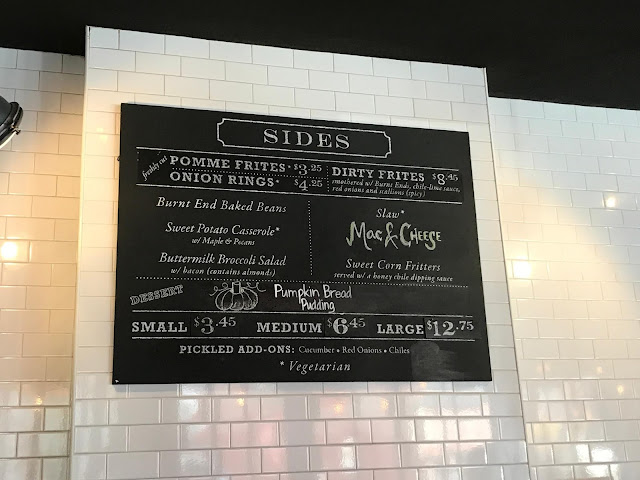 SIDES
freshly cut POMME FRITES* $3.25
ONION RINGS* $4.25
DIRTY FRITES $8.45
smothered w/ Burnt Ends, chile-lime sauce,
red onions and scallions (spicy)
Burnt End Baked Beans
Sweet Potato Casserole*
w/ Maple & Pecans
Buttermilk Broccoli Salad
w/ bacon (contains almonds)
Slaw*
Mac & Cheese
Sweet Corn Fritters
served w/ a honey chile dipping sauce
DESSERT
Pumpkin Bread
Pudding
SMALL $3.45 MEDIUM $6.45 LARGE $12.75
PICKLED ADD-ONS: Cucumber • Red Onions • Chiles
* Vegetarian